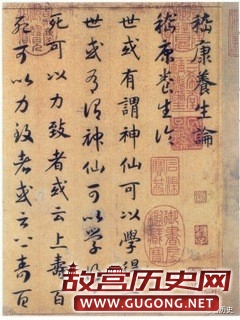 嵇康養生論
嵇康養生論
世或有謂神仙可以學得
世或有謂神仙可以學
死可以力致者或云上壽百
死可以力致者或云上壽百
故宫历史网
WWW.GUGONG.NET
历史